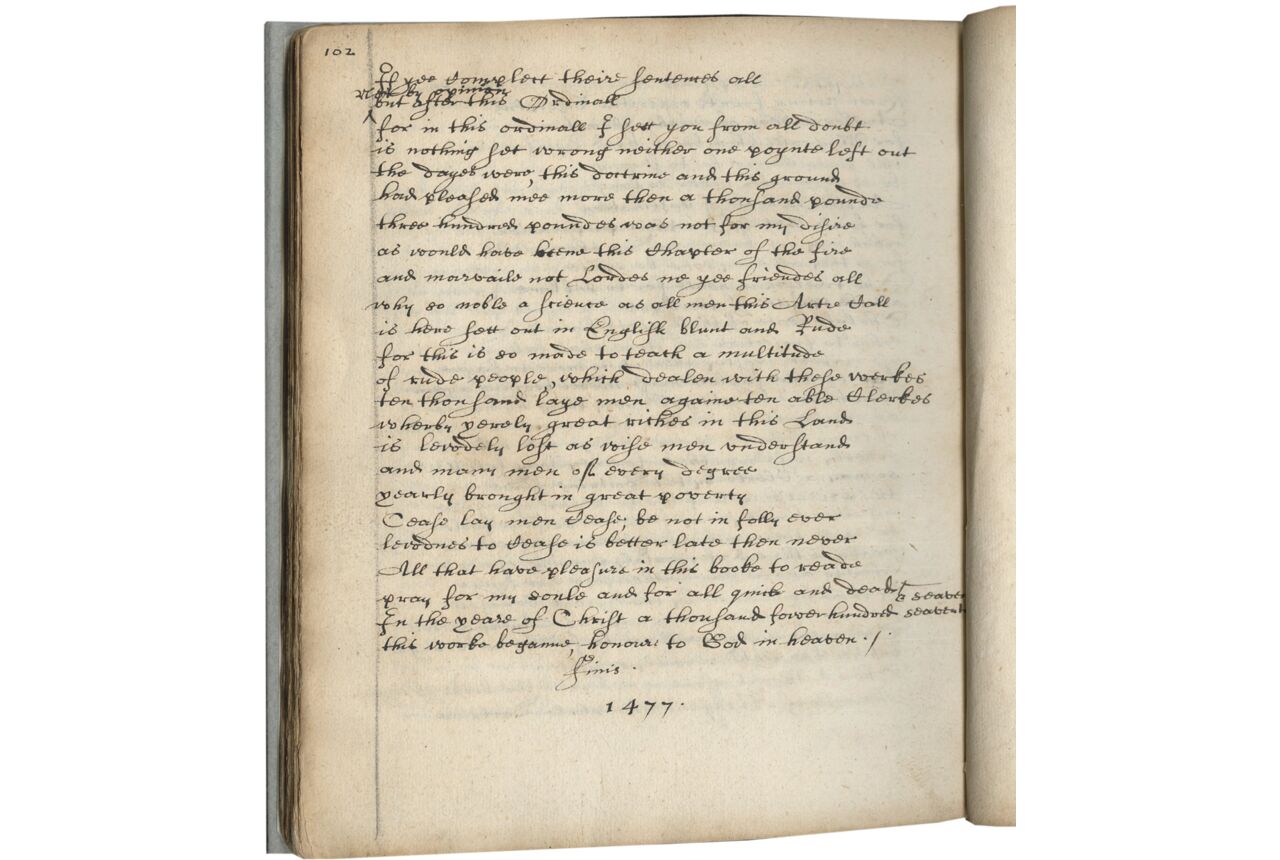 102
If yee Complect theire sentences all
not by opinion
but After this Ordinall
for in this ordinall I sett you from all doubt
is nothing set wrong neither one poynte left out
the dayes were, this doctrine and this ground
had pleased mee more then a thousand pounde
three hundred poundes was not for my disire
as would have beene this Chapter of the fire
and marvaile not Lordes ne yee friendes all
why so noble a science as all men this Arte Call
is here sett out in English blunt and Rude
for this is so made to teach a multitude
of rude people, which dealen with these werkes
ten thousand laye men againe ten able Clerkes
wherby yerely great riches in this Land
is lewdely lost as wise men understand
and many men of every degree
yearly brought in great poverty
Cease lay men Cease, be not in folly ever
lewdnes to Cease is better late then never
All that have pleasure in this booke to reade
pray for my soule and for all quick and dead
In the yeare of Christ a thousand fower hundred seaventy seaven
this worke beganne, honour to God in heaven ./.
Finis .
1477.